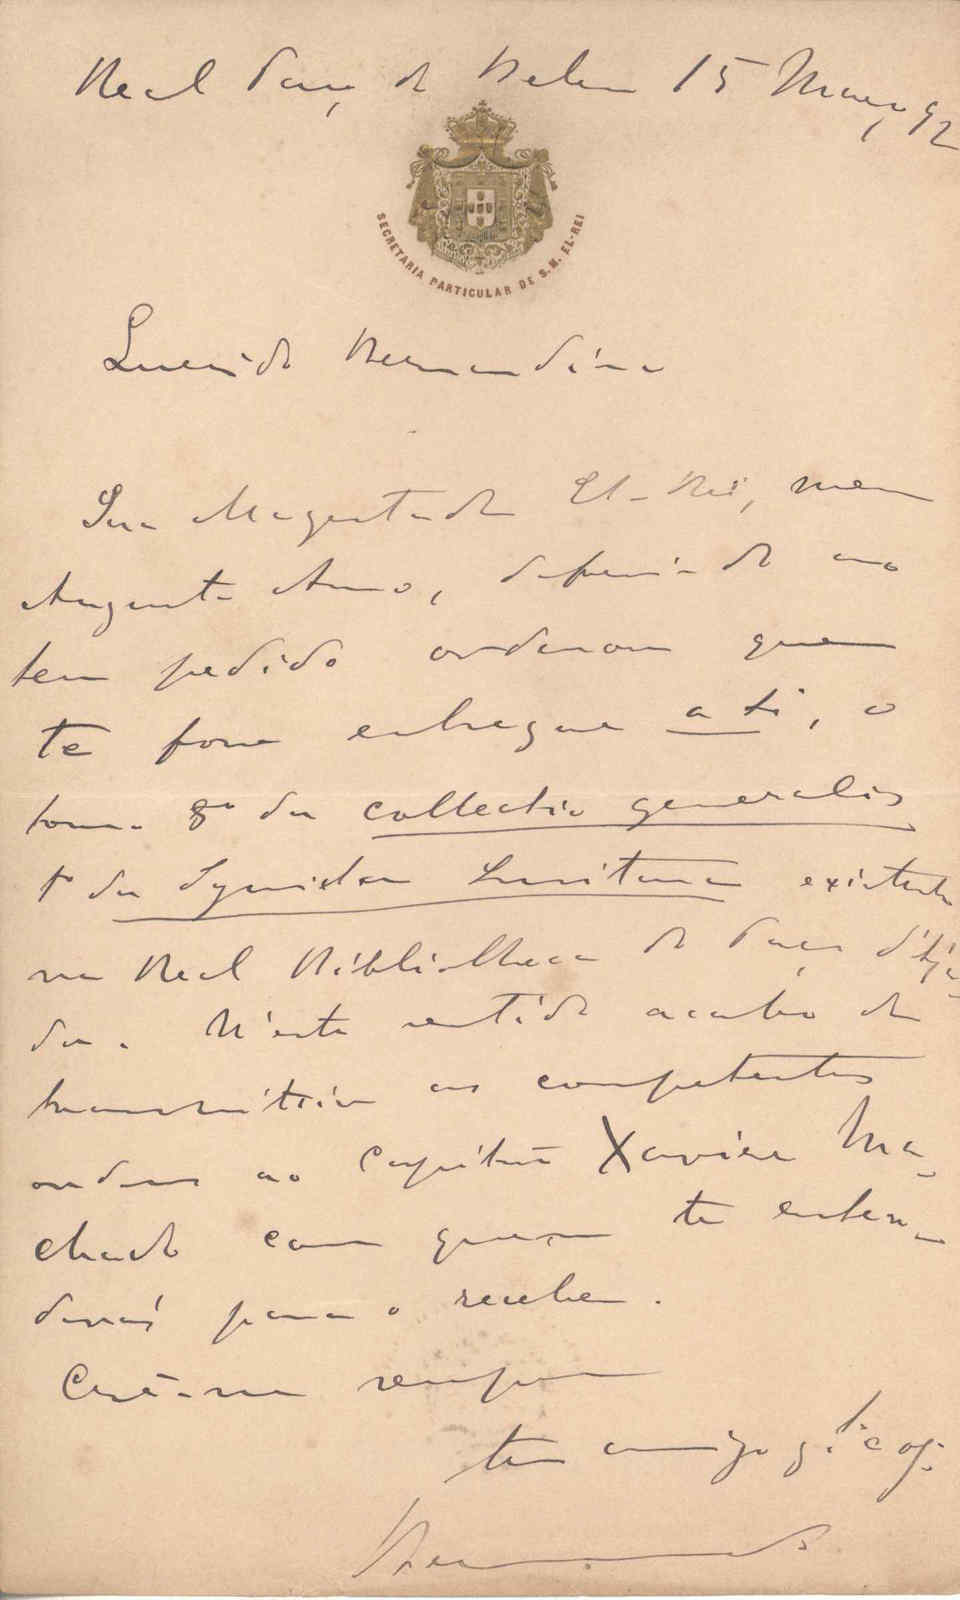 Real Paço de Belem 15 Março 92
SECRETARIA PARTICULAR DE S. M. EL-REI
Querido Bernardino
Sua Magestade El-Rei, meu
Augusto Amo, deferindo ao
teu pedido ordenou que
te fosse entregue a ti, o
tomo 8º da collectio generalis
da Symicta Lusitana existente
na Real Bibliotheca do Paço d'Aju-
da. N'este sentido acabo de
transmittir as competentes
ordens ao Capitão Xavier Ma-
chado com quem te enten-
derás para o receber.
Crê-me sempre
teu amigo
Bernardo